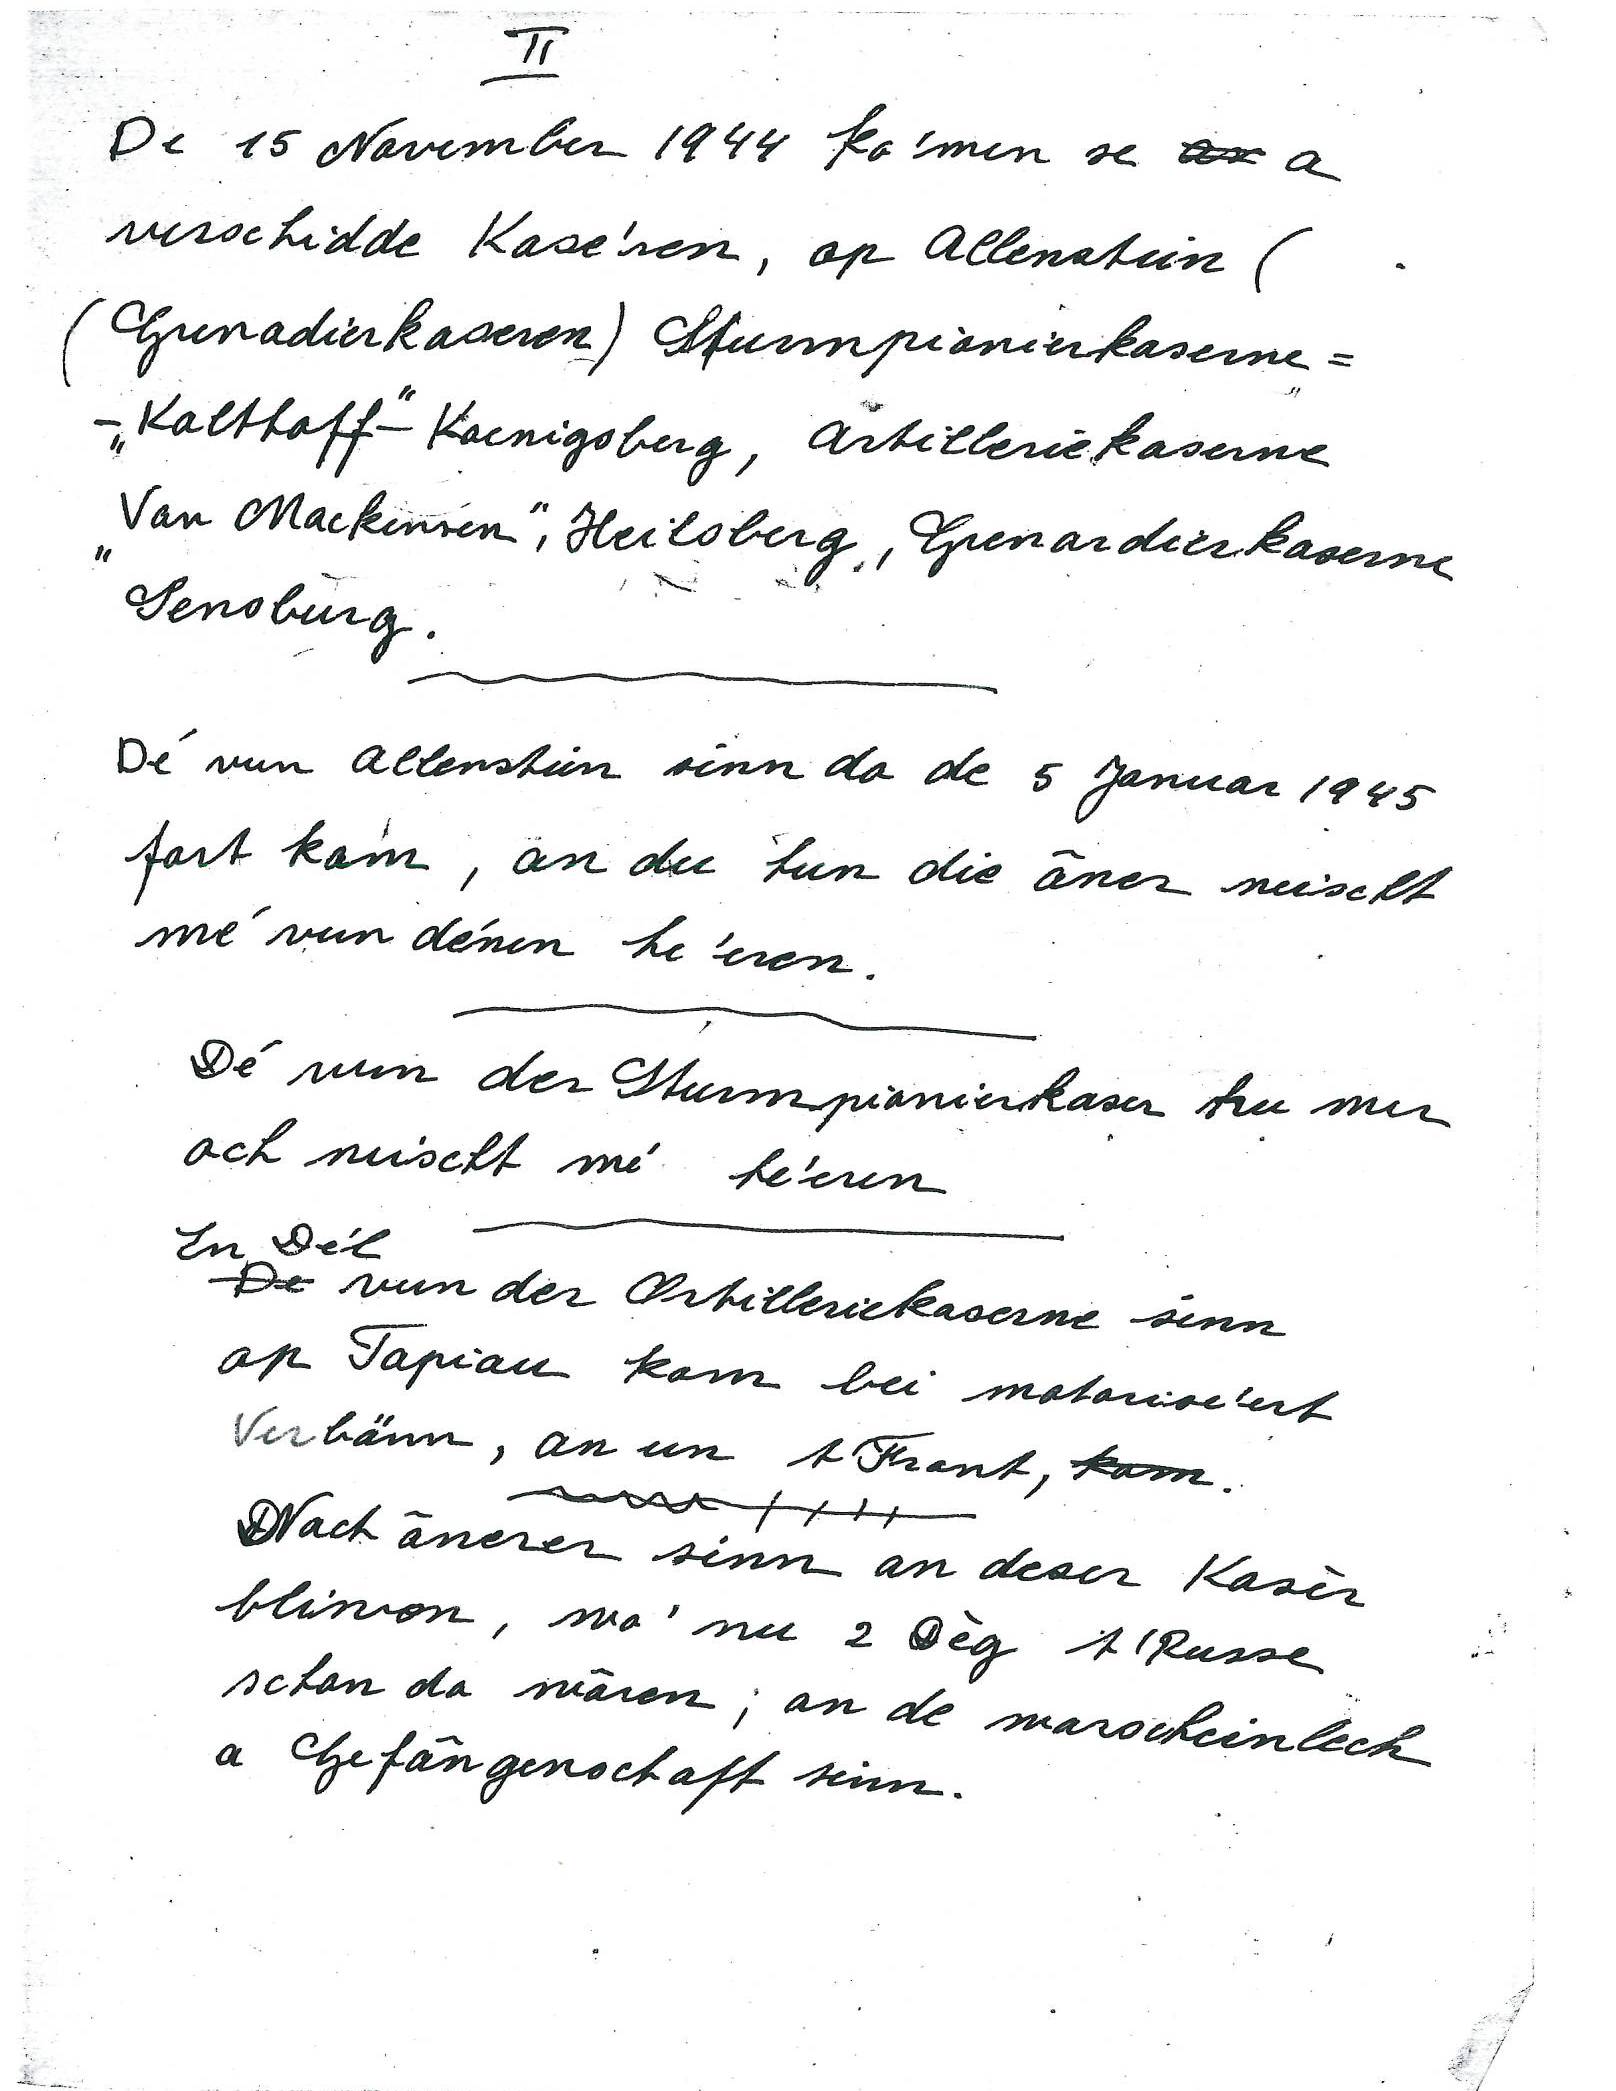 II
De 15 November 1944 ko'men se a
verschidde Kase'ren, op Allenstein (
(Grenadierkaseren) Sturmpionierkaserne =
-„Kalthoff"- Koenigsberg, Artilleriekaserne
„Von Mackensen", Heilsberg, Grenardierkaserne
Sensburg.
Dé vun Allenstein sinn do de 5 Januar 1945
fort kom, an du hun die äner neischt
mé vun dénen he'eren.
Dé vun der Sturmpionierkaser hu mer
och neischt mé he'eren
En Dél
De vun der Artilleriekaserne sinn
op Tapiau kom bei motorise'ert
Verbänn, an un t Front, kom.
Nach änerer sinn an deser Kasèr
bliwen, wo' nu 2 Dèg t'Russe
schon do wären; an de warscheinlech
a Gefängenschaft sinn.